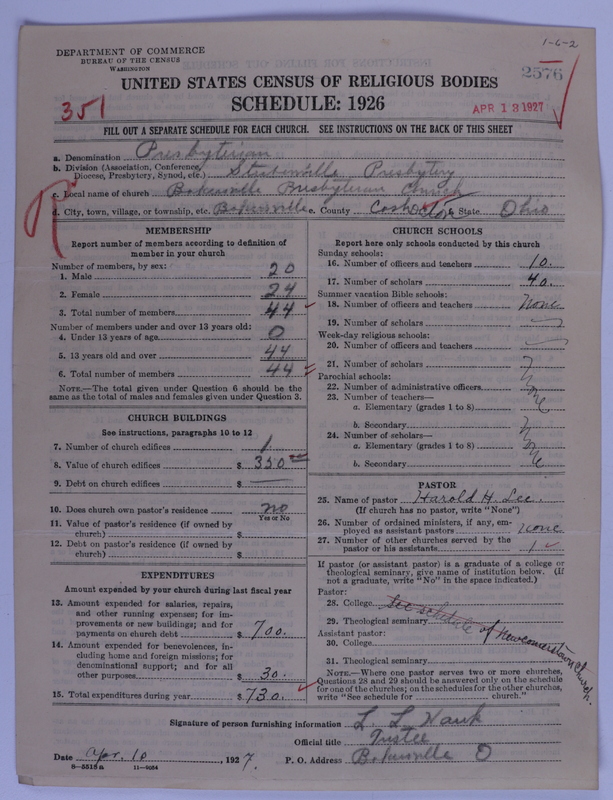 1-6-2
DEPARTMENT OF COMMERCE
BUREAU OF THE CENSUS
WASHINGTON
2576
UNITED STATES CENSUS OF RELIGIOUS BODIES
SCHEDULE: 1926
351
APR 13 1927
FILL OUT A SEPARATE SCHEDULE FOR EACH CHURCH. SEE INSTRUCTIONS ON THE BACK OF THIS SHEET
a. Denomination Presbyterian
b. Division (Association, Conference, Diocese, Presbytery, Synod, etc.) Steubenville Presbytery
c. Local name of church Bakersville Presbyterian Church
d. City, town, village, or township, etc. Bakersville e. County Coshocton State Ohio
MEMBERSHIP
Report number of members according to definition of
member in your church
Number of members, by sex:
1. Male 20
2. Female 24
3. Total number of members 44
Number of members under and over 13 years old:
4. Under 13 years of age 0
5. 13 years old and over 44
6. Total number of members 44
NOTE.—The total given under Question 6 should be the
same as the total of males and females given under Question 3.
CHURCH BUILDINGS
See instructions, paragraphs 10 to 12
7. Number of church edifices 1
8. Value of church edifices $ 350
9. Debt on church edifices $
10. Does church own pastor's residence? no
Yes or No
11. Value of pastor's residence (if owned by
church) $
12. Debt on pastor's residence (if owned by
church) $
EXPENDITURES
Amount expended by your church during last fiscal year
13. Amount expended for salaries, repairs,
and other running expenses; for im-
provements or new buildings; and for
payments on church debt $ 700.
14. Amount expended for benevolences, in-
cluding home and foreign missions; for
denominational support; and for all
other purposes $ 30.
15. Total expenditures during year $ 730.
CHURCH SCHOOLS
Report here only schools conducted by this church
Sunday schools:
16. Number of officers and teachers 10.
17. Number of scholars 40.
Summer vacation Bible schools:
18. Number of officers and teachers none
19. Number of scholars
Week-day religious schools:
20. Number of officers and teachers
21. Number of scholars
Parochial schools:
22. Number of administrative officers
23. Number of teachers—
a. Elementary (grades 1 to 8)
b. Secondary
24. Number of scholars—
a. Elementary (grades 1 to 8)
b. Secondary
PASTOR
25. Name of pastor Harold H. Lee.
(If church has no pastor, write "None")
26. Number of ordained ministers, if any, em-
ployed as assistant pastors none
27. Number of other churches served by the
pastor or his assistants 1
If pastor (or assistant pastor) is a graduate of a college or
theological seminary, give name of institution below. (If
not a graduate, write "No" in the space indicated.)
Pastor:
28. College See schedule of Newcomerstown church.
29. Theological seminary
Assistant pastor:
30. College
31. Theological seminary
NOTE.—Where one pastor serves two or more churches,
Questions 28 and 29 should be answered only on the schedule
for one of the churches; on the schedules for the other churches,
write "See schedule for church."
Signature of person furnishing information L. L. Hawk
Official title Trustee
Date Apr. 10, 1927. P. O. Address Bakersville O
8—5515a 11—9054